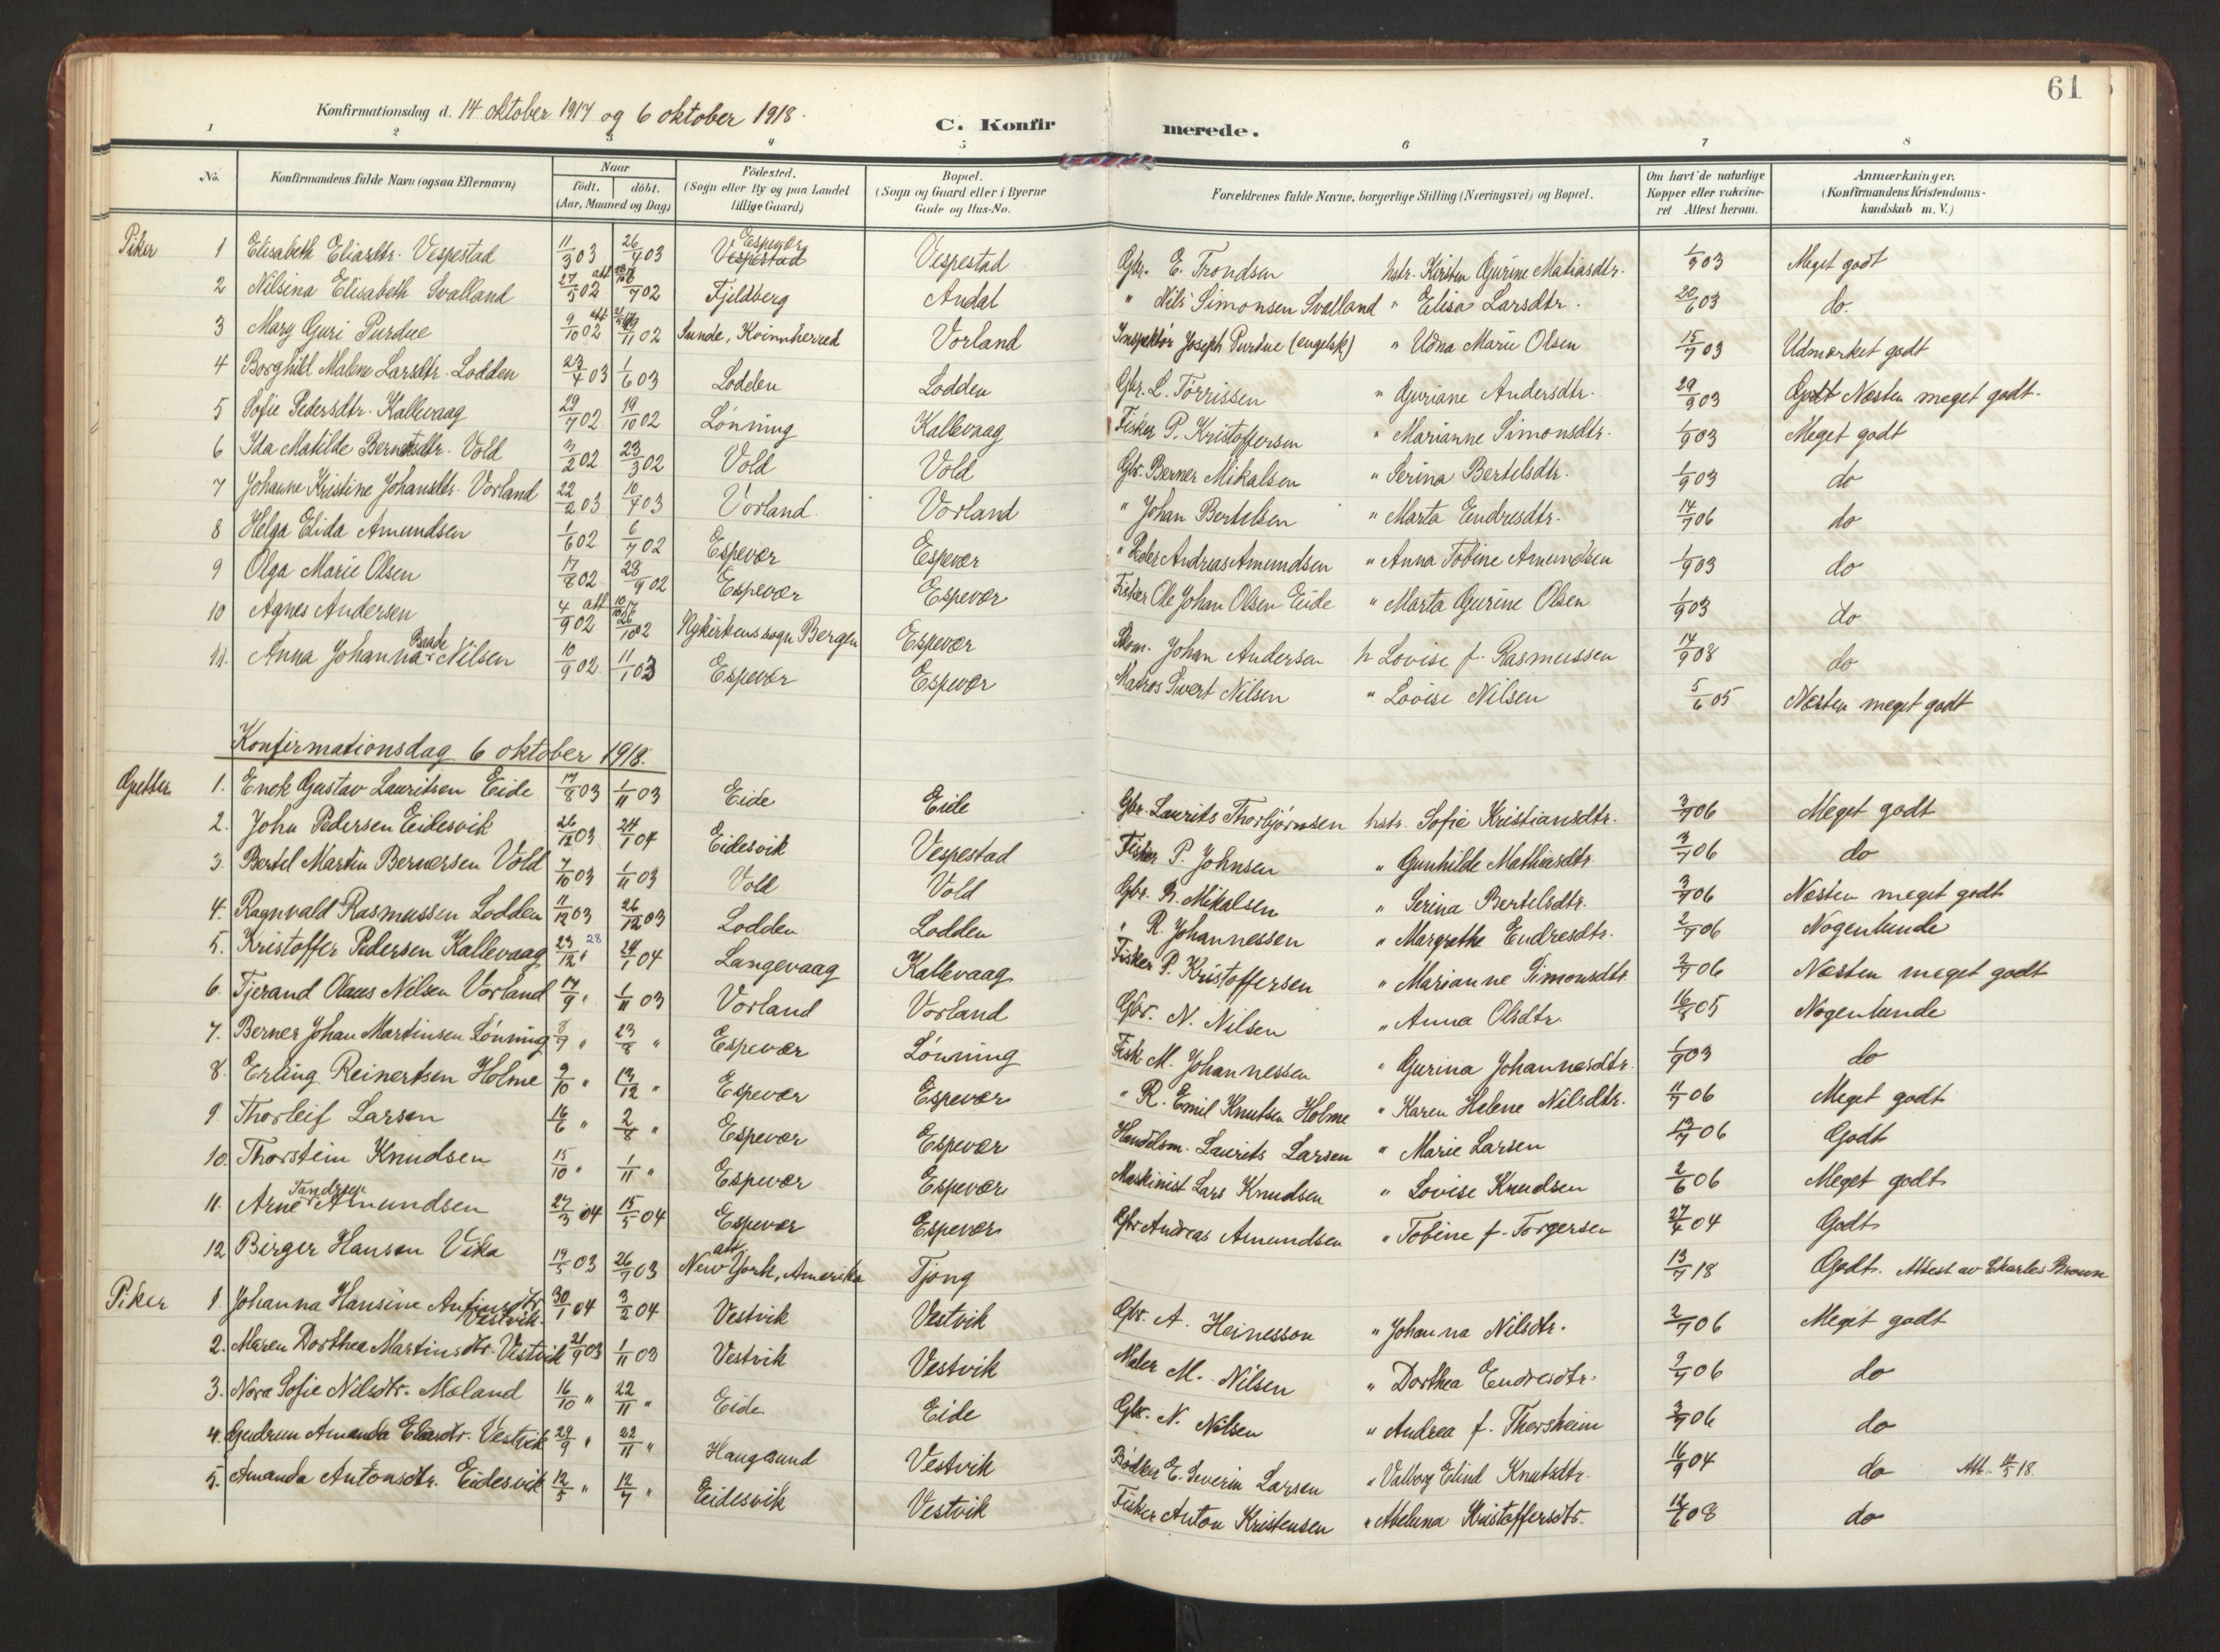 61
Konfirmationsdag d. 14 oktober 1917 og 6 oktober 1918.
C. Konfirmerede.
1 2 3 4 5 6 7 8
No. Konfirmandens fulde Navn (ogsaa Efternavn) Naar født. døbt. (Aar, Maaned og Dag) Fødested. (Sogn eller By og paa Landet tillige Gaard) Bopæl. (Sogn og Gaard eller i Byerne Gade og Hus-No. Forældrenes fulde Navne, borgerlige Stilling (Næringsvei) og Bopæl. Om havt de naturlige Kopper eller vakcineret Attest herom. Anmærkninger. (Konfirmandens Kristendomskundskab m. V.)
Piker 1 Elisabeth Eliasdtr. Vespestad 11/3 03 26/4 03 Vespestad Espevær Vespestad Gbr. E. Trondsen hstr. Kirsten Gurine Matiasdtr. 1/9 03 Meget godt
2 Nilsina Elisabeth Svalland 27/5 02 att /7 02 Fjeldberg Andal " Nils Simonsen Svalland " Elisa Larsdtr. 20/6 03 do.
3 Mary Guri Purdue 9/10 02 att /11 02 Sunde, Kvinnherred Vorland Inspektør Joseph Purdue (engelsk) " Udna Marie Olsen 15/7 03 Udmærket godt
4 Borghild Malene Larsdtr. Lodden 23/4 03 1/6 03 Lodden Lodden Gbr. L. Tørrissen " Guriane Andersdtr. 29/9 03 Godt Næsten meget godt.
5 Sofie Pedersdtr. Kallevaag 29/7 02 19/10 02 Lønning Kallevaag Fisker P. Kristoffersen " Marianne Simonsdtr. 1/9 03 Meget godt
6 Ida Matilde Bernersdtr. Vold 3/2 02 23/3 02 Vold Vold Gbr. Berner Mikalsen " Serina Bertelsdtr. 1/9 03 do
7 Johanne Kristine Johansdtr. Vorland 22/2 03 10/4 03 Vorland Vorland " Johan Bertelsen " Marta Endresdtr. 14/7 06 do
8 Helga Elida Amundsen 1/6 02 6/7 02 Espevær Espevær " Peder Andreas Amundsen " Anna Tobine Amundsen 1/9 03 do
9 Olga Marie Olsen 17/8 02 28/9 02 Espevær Espevær Fisker Ole Johan Olsen Eide " Marta Gurine Olsen 1/9 03 do
10 Agnes Andersen 4/9 02 att 26/10 02 Nykirkens sogn Bergen Espevær Skom. Johan Andersen h Lovise f. Rasmussen 14/9 08 do
11. Anna Johanna Baade Nilsen 10/9 02 11/1 03 Espevær Espevær Matros Sivert Nilsen " Lovise Nilsen 5/6 05 Næsten meget godt
Konfirmationsdag 6 oktober 1918.
Gutter 1. Enok Gustav Lauritsen Eide 17/8 03 1/11 03 Eide Eide Gbr. Laurits Thorbjørnsen hstr. Sofie Kristiansdtr. 3/7 06 Meget godt
2. John Pedersen Eidesvik 26/12 03 24/1 04 Eidesvik Vespestad Fisker P. Johnsen " Gunhilde Mathiasdtr. 3/7 06 do
3. Bertel Martin Bernersen Vold 7/10 03 1/11 03 Vold Vold Gbr. B. Mikalsen " Serina Bertelsdtr. 3/7 06 Næsten meget godt
4. Ragnvald Rasmussen Lodden 11/12 03 26/12 03 Lodden Lodden " R. Johannessen " Margrethe Endresdtr. 2/7 06 Nogenlunde
5. Kristoffer Pedersen Kallevaag 23/12 " 28 24/1 04 Langevaag Kallevaag Fisker P. Kristoffersen " Marianne Simonsdtr. 2/7 06 Næsten meget godt
6. Tjerand Olaus Nilsen Vorland 17/9 " 1/11 03 Vorland Vorland Gbr. N. Nilsen " Anna Olsdtr. 16/8 05 Nogenlunde
7. Berner Johan Martinsen Lønning 8/7 " 23/8 " Espevær Lønning Fisk. M. Johannessen " Gurina Johannesdtr. 1/9 03 do
8. Erling Reinertsen Holme 9/10 " 13/12 " Espevær Espevær " R. Emil Knutsen Holme " Karen Helene Nilsdtr. 11/7 06 Meget godt
9. Thorleif Larsen 16/6 " 2/8 " Espevær Espevær Handelsm. Laurits Larsen " Marie Larsen 13/7 06 Godt
10. Thorstein Knudsen 15/10 " 1/11 " Espevær Espevær Maskinist Lars Knudsen " Lovise Knudsen 2/6 06 Meget godt
11. Arne Amundsen 27/3 04 15/5 04 Espevær Espevær Gbr Andreas Amundsen " Tobine f. Torgersen 27/4 04 Godt
12 Birger Hansen Vika 19/5 03 26/7 03 att New York, Amerika Tjong 13/7 18 Godt. Attest av Charles Brown
Piker 1. Johanna Hansine Antinsdtr. Vestvik 30/1 04 3/2 04 Vestvik Vestvik Gbr. A. Heinesson " Johanna Nilsdtr. 2/7 06 Meget godt
2. Maren Dorthea Martinsdtr. Vestvik 21/9 03 1/11 03 Vestvik Vestvik Maler M. Nilsen " Dorthea Endresdtr. 9/7 06 do
3. Nora Sofie Nilsdtr. Mæland 16/10 " 22/11 " Eide Eide Gbr. N. Nilsen " Andrea f. Thorsheim 3/7 06 do
4. Gudrun Amanda Eliasdtr. Vestvik 29/9 " 22/11 " Haugesund Vestvik Bødker E. Severin Larsen " Valborg Elind Knutsdtr. 16/9 04 do Att. 18.
5. Amanda Antonsdtr. Eidesvik 12/5 " 12/7 " Eidesvik Vestvik Fisker Anton Kristensen " Abeluna Kristoffersdtr. 12/6 08 do